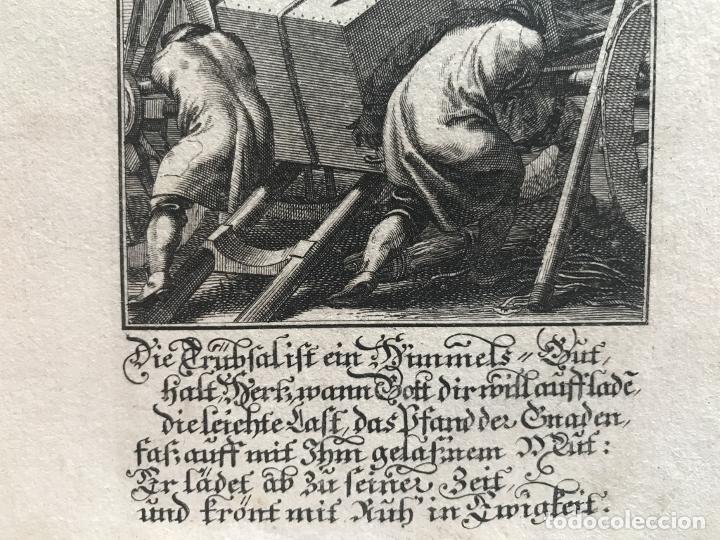 Die Trübsal ist ein Himmels-Gut
halt, Hertz, wann Gott dir will auffladē
die leichte Last, das Pfand der Gnaden,
faß auff mit Ihm gelaßnem Mut:
Er lädet ab zu seiner Zeit,
und krönt mit Ruh' in Ewigkeit.
todocoleccion